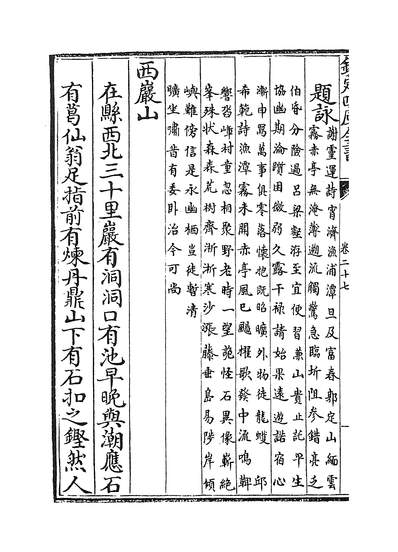 欽定四庫全書
卷二十七
題詠
謝靈運詩宵濟漁浦潭旦及富春郭定山緬雲
霧赤亭無淹薄遡流觸驚急臨圻阻參錯亮乏
伯昏分險過吕梁壑洊至宜便習兼山貴止託平生
協幽期淪躓困微弱久露干禄請始果遠遊諾宿心
漸申寫萬事俱零落懷抱既昭曠外物徒龍蠖 邱
希範詩漁潭霧未開赤亭風已颺櫂歌發中流鳴鞞
響沓嶂村童忽相聚野老時一望詭怪石異像嶄絶
峯殊狀森森荒樹齊淅淅寒沙漲藤垂島易陟岸傾
嶼難傍信是永幽棲豈徒暫清
曠坐嘯昔有委卧治今可尚
西巖山
在縣西北三十里巖有洞洞口有池早晩與潮應石
有葛仙翁足指前有煉丹鼎山下有石扣之鏗然人